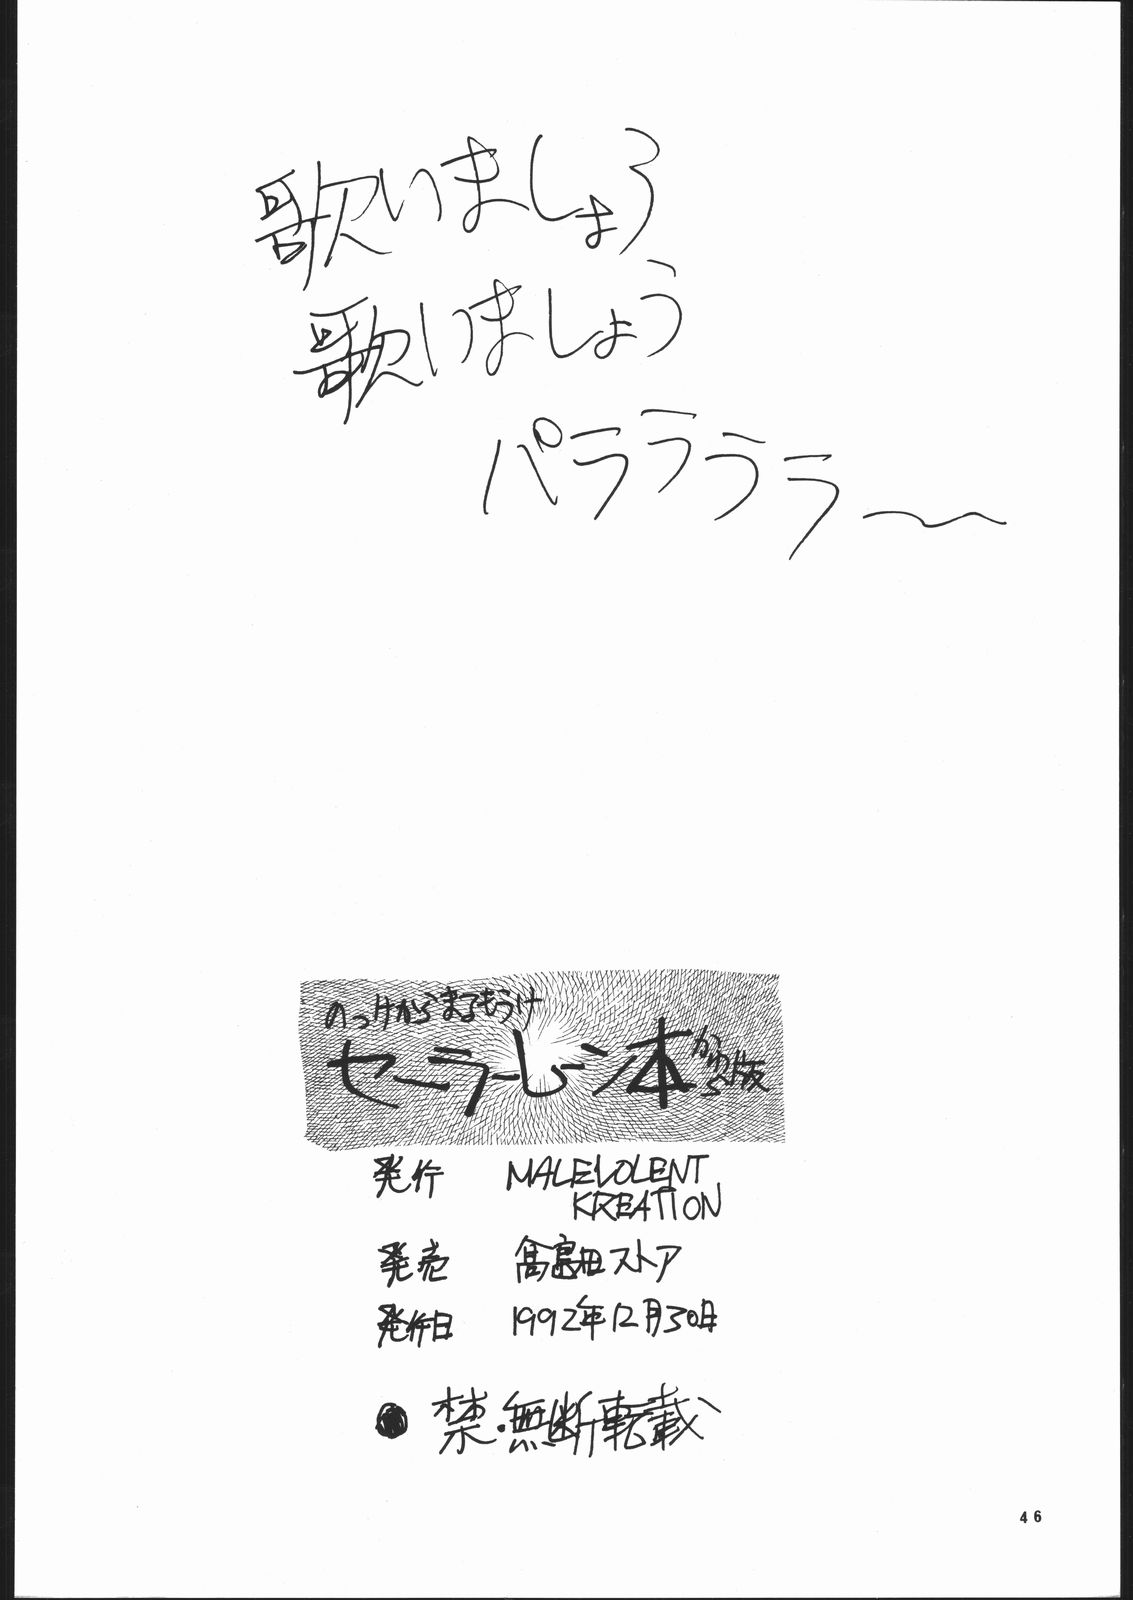 歌いましょう
歌いましょう
パラララララ〜
のっけからまるもうけ
セーラームーン本
版
発行 MALEVOLENT
KREATION
発売 髙島田ストア
発行日 1992年12月30日
● 禁・無断転載
46